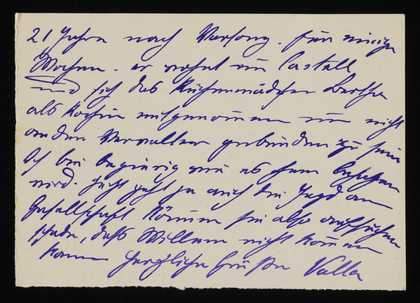 21 Jahre nach Versorg. für einige
Wochen. er wohnt im Castell
und sich das Küchenmädchen Bertha
als Köchin mitgenommen um nicht
an den Verwalter gebunden zu sein
Ich bin begierig wie es ihm
wird. Jetzt geht ja auch die Jagd an
Gesellschaft können sie also aufsuchen
schade, daß Willem nicht kommen
kann herzliche Grüße